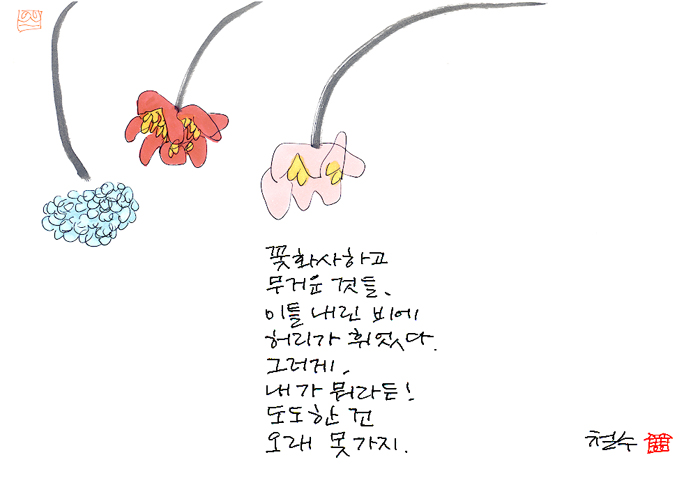 꽃화사하고
무거운 것들.
이틀 내린 비에
허리가 휘었다.
그러게,
내가 뭐라든!
도도한 건
오래 못가지.
철수